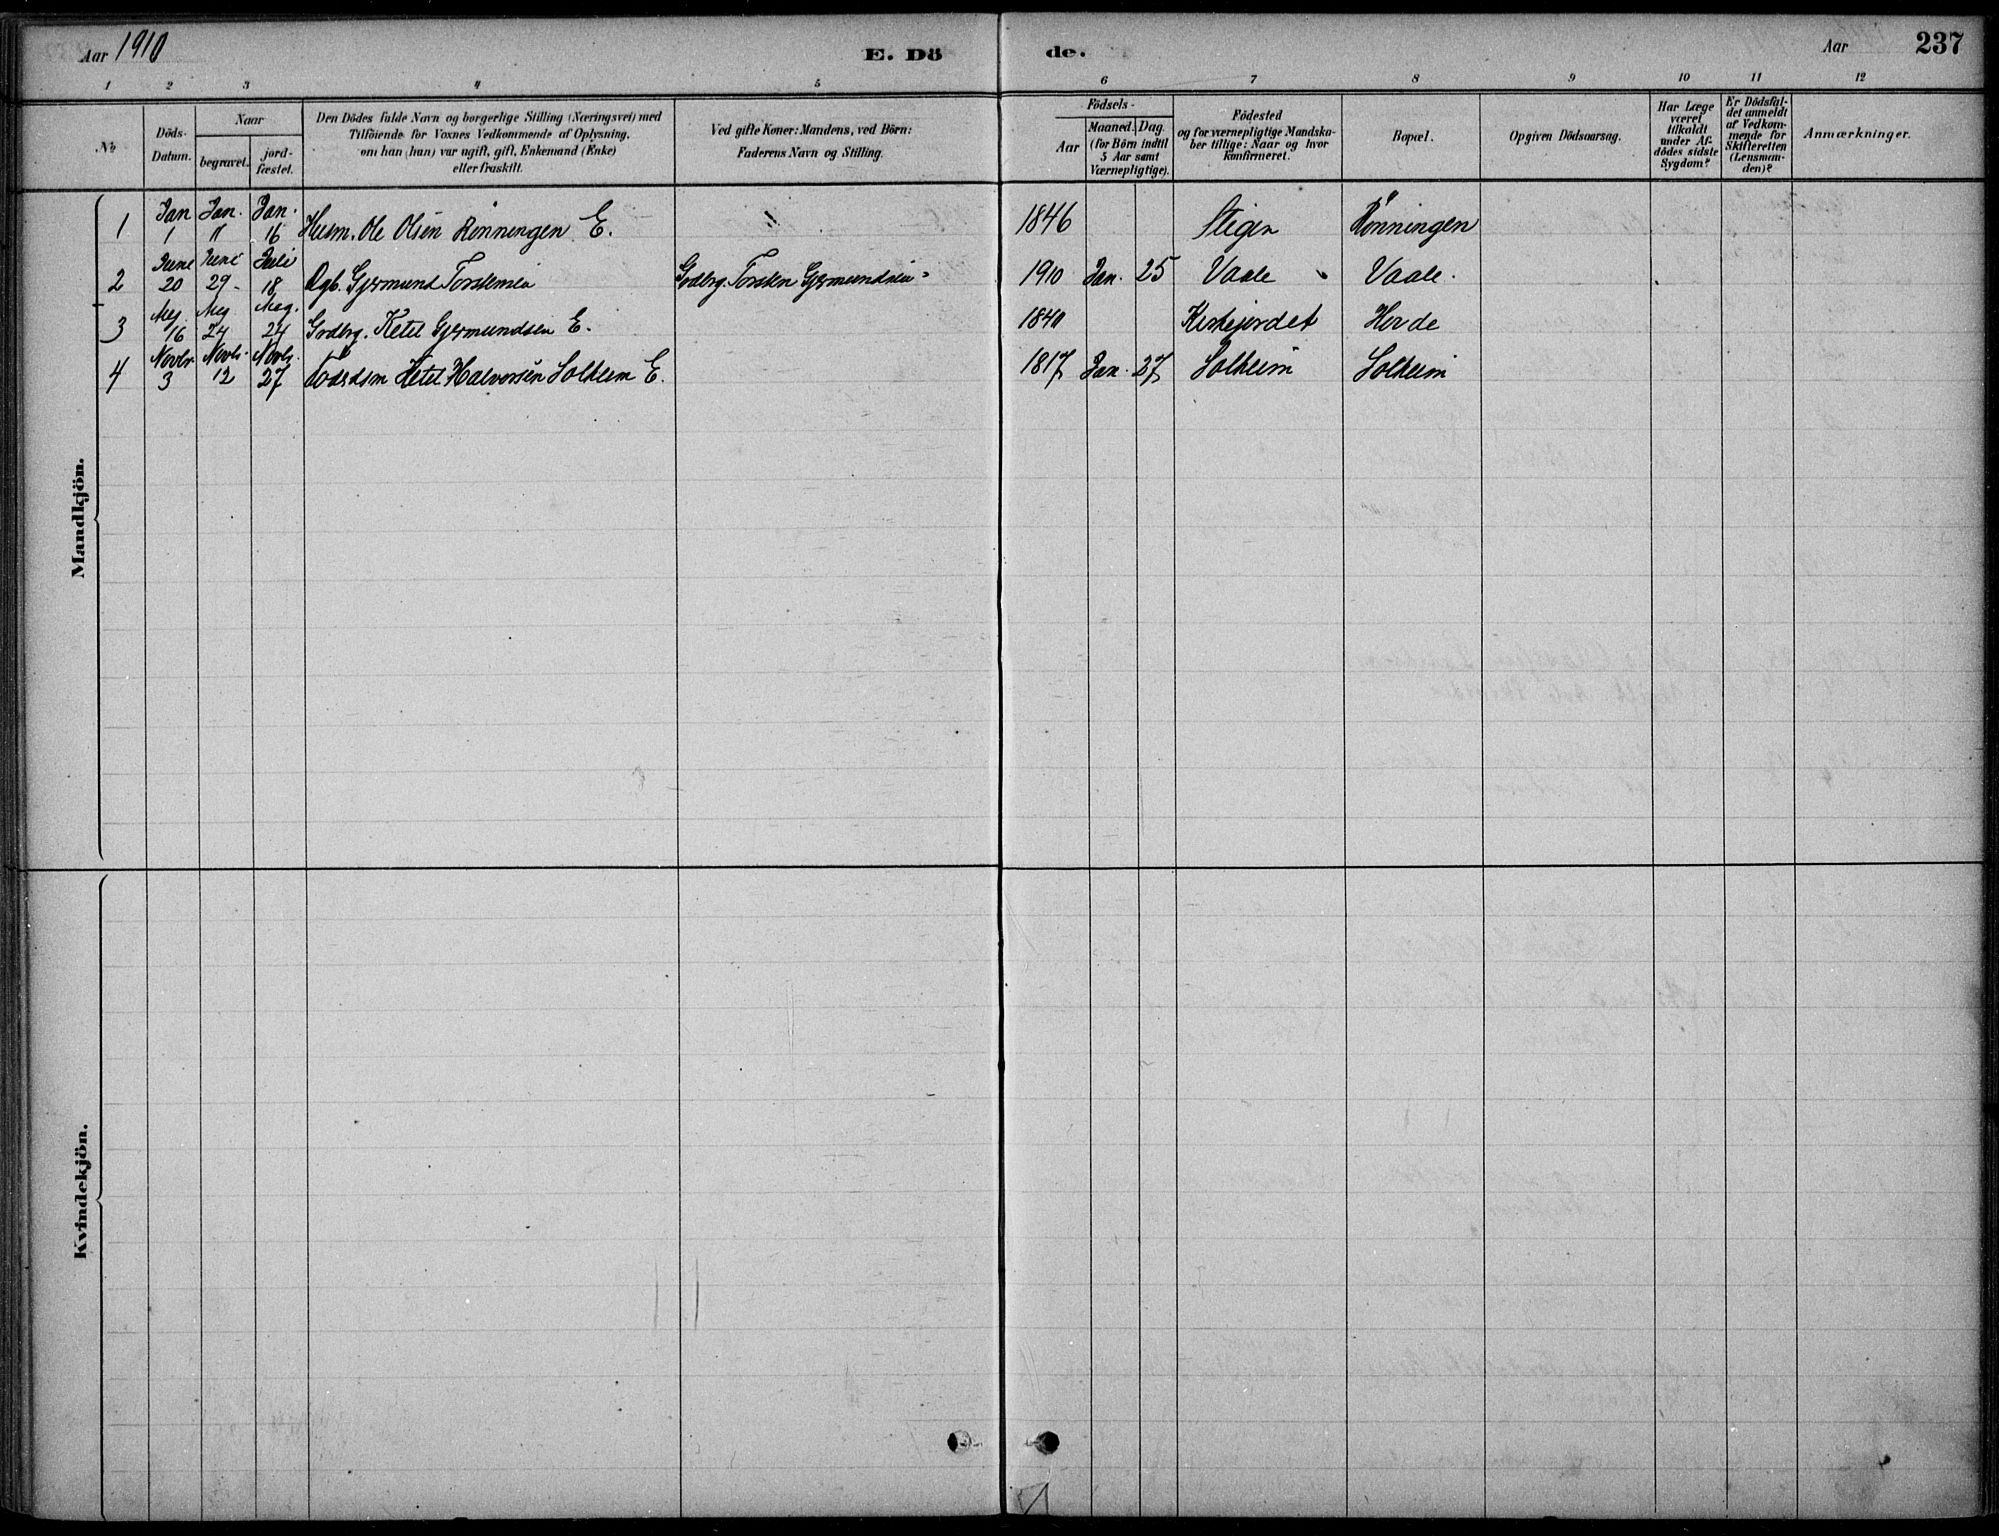 Aar 1910 E. Dö de. Aar 237
1 2 3 4 5 6 7 8 9 10 11 12
No
Döds-
Datum.
Naar
begravet.
jord-
fæstet.
Den Dödes fulde Navn og borgerlige Stilling (Næringsvei) med
Tilföiende for Voxnes Vedkommende af Oplysning,
om han (hun) var ugift, gift, Enkemand (Enke)
eller fraskilt.
Ved gifte Koner: Mandens, ved Börn:
Faderens Navn og Stilling.
Födsels-
Aar
Maaned. Dag.
(for Börn indtil
5 Aar samt
Værnepligtige).
Födested
og for værnepligtige Mandska-
ber tillige: Naar og hvor
konfirmeret.
Bopæl.
Opgiven Dödsaarsag.
Har Læge
været
tilkaldt
under Af-
dödes sidste
Sygdom?
Er Dödsfal-
det anmeldt
af Vedkom-
mende for
Skifteretten
(Lensman-
den)?
Anmærkninger.
Mandkjön.
Jan Jan. Jan.
1 1 11 16 Husm. Ole Olsen Rönningen E. " 1846 Steger Rönningen
Juni Juni Juli
2 20 29 18 Dgb. Gjermund Torstensen Grdbrg. Torsten Gjermundsen 1910 Jan. 25 Vaale Vaale.
Maj Maj Maj.
3 16 24 24 Grdbrg. Ketil Gjermundsen E. 1840 Kirkejordet Hovde
Novbr Novb. Novb.
4 3 12 27 Foderdsm Ketil Halvorsen Solheim E. 1817 Jan. 27 Solheim Solheim
Kvindekjön.